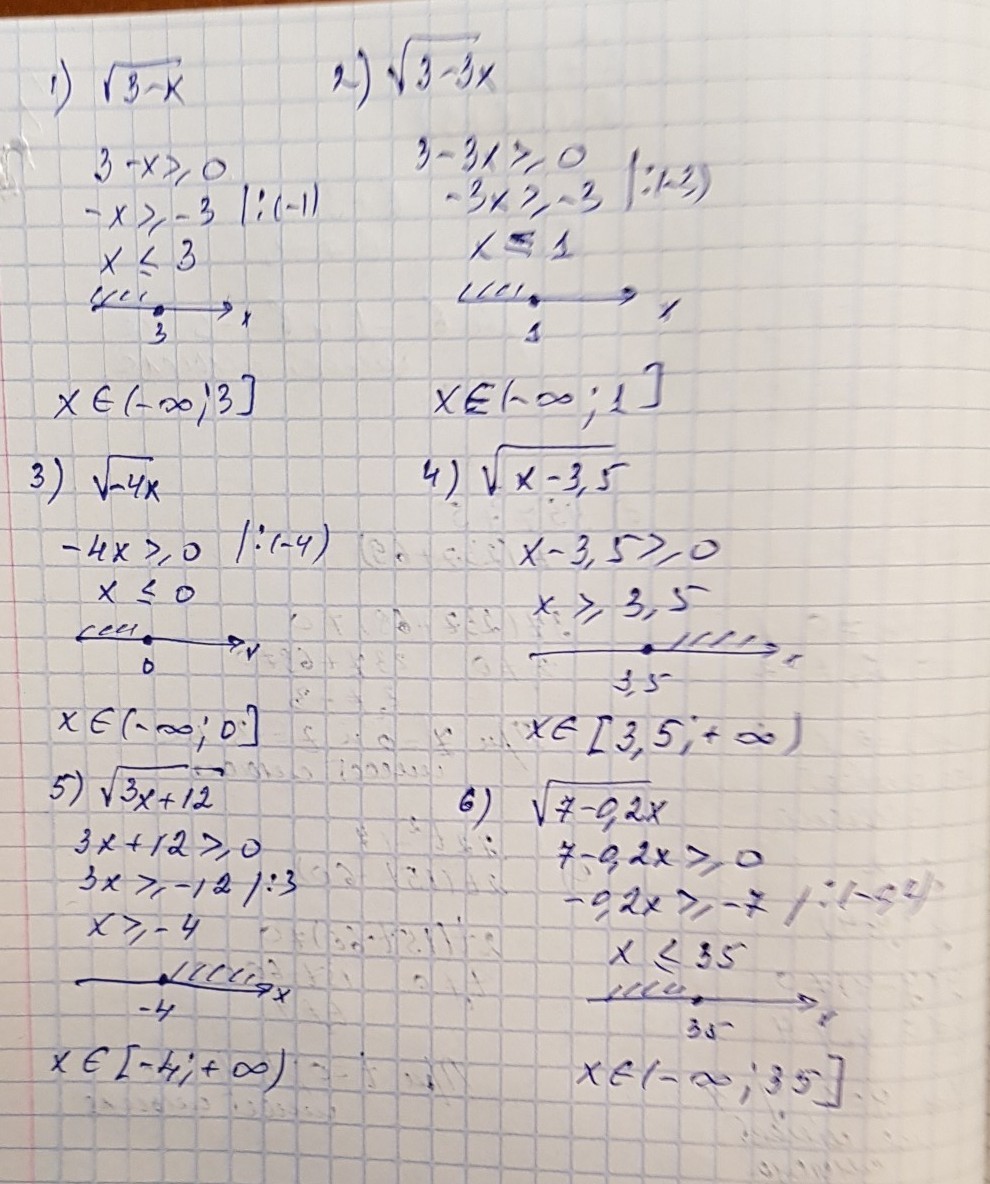 1) √3-x
3-x ≥ 0
-x ≥ -3 |:(-1)
x ≤ 3
3 x
x ∈ (-∞; 3]
2) √3-3x
3-3x ≥ 0
-3x ≥ -3 |:(-3)
x ≤ 1
1 x
x ∈ (-∞; 1]
3) √-4x
-4x ≥ 0 |:(-4)
x ≤ 0
0 x
x ∈ (-∞; 0]
4) √x-3,5
x-3,5 ≥ 0
x ≥ 3,5
3,5 x
x ∈ [3,5; +∞)
5) √3x+12
3x+12 ≥ 0
3x ≥ -12 |:3
x ≥ -4
-4 x
x ∈ [-4; +∞)
6) √7-0,2x
7-0,2x ≥ 0
-0,2x ≥ -7 |:(-0,2)
x ≤ 35
35 x
x ∈ (-∞; 35]